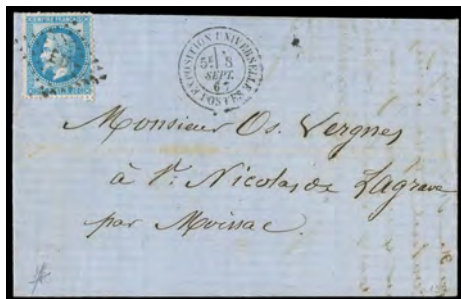 EMPIRE FRANÇAIS
EXPOSITION UNIVERSELLE
5E 8
SEPT.
67
POSTES
Monsieur Os. Vergnes
à St. Nicolas de Lagrave
par Moissac.